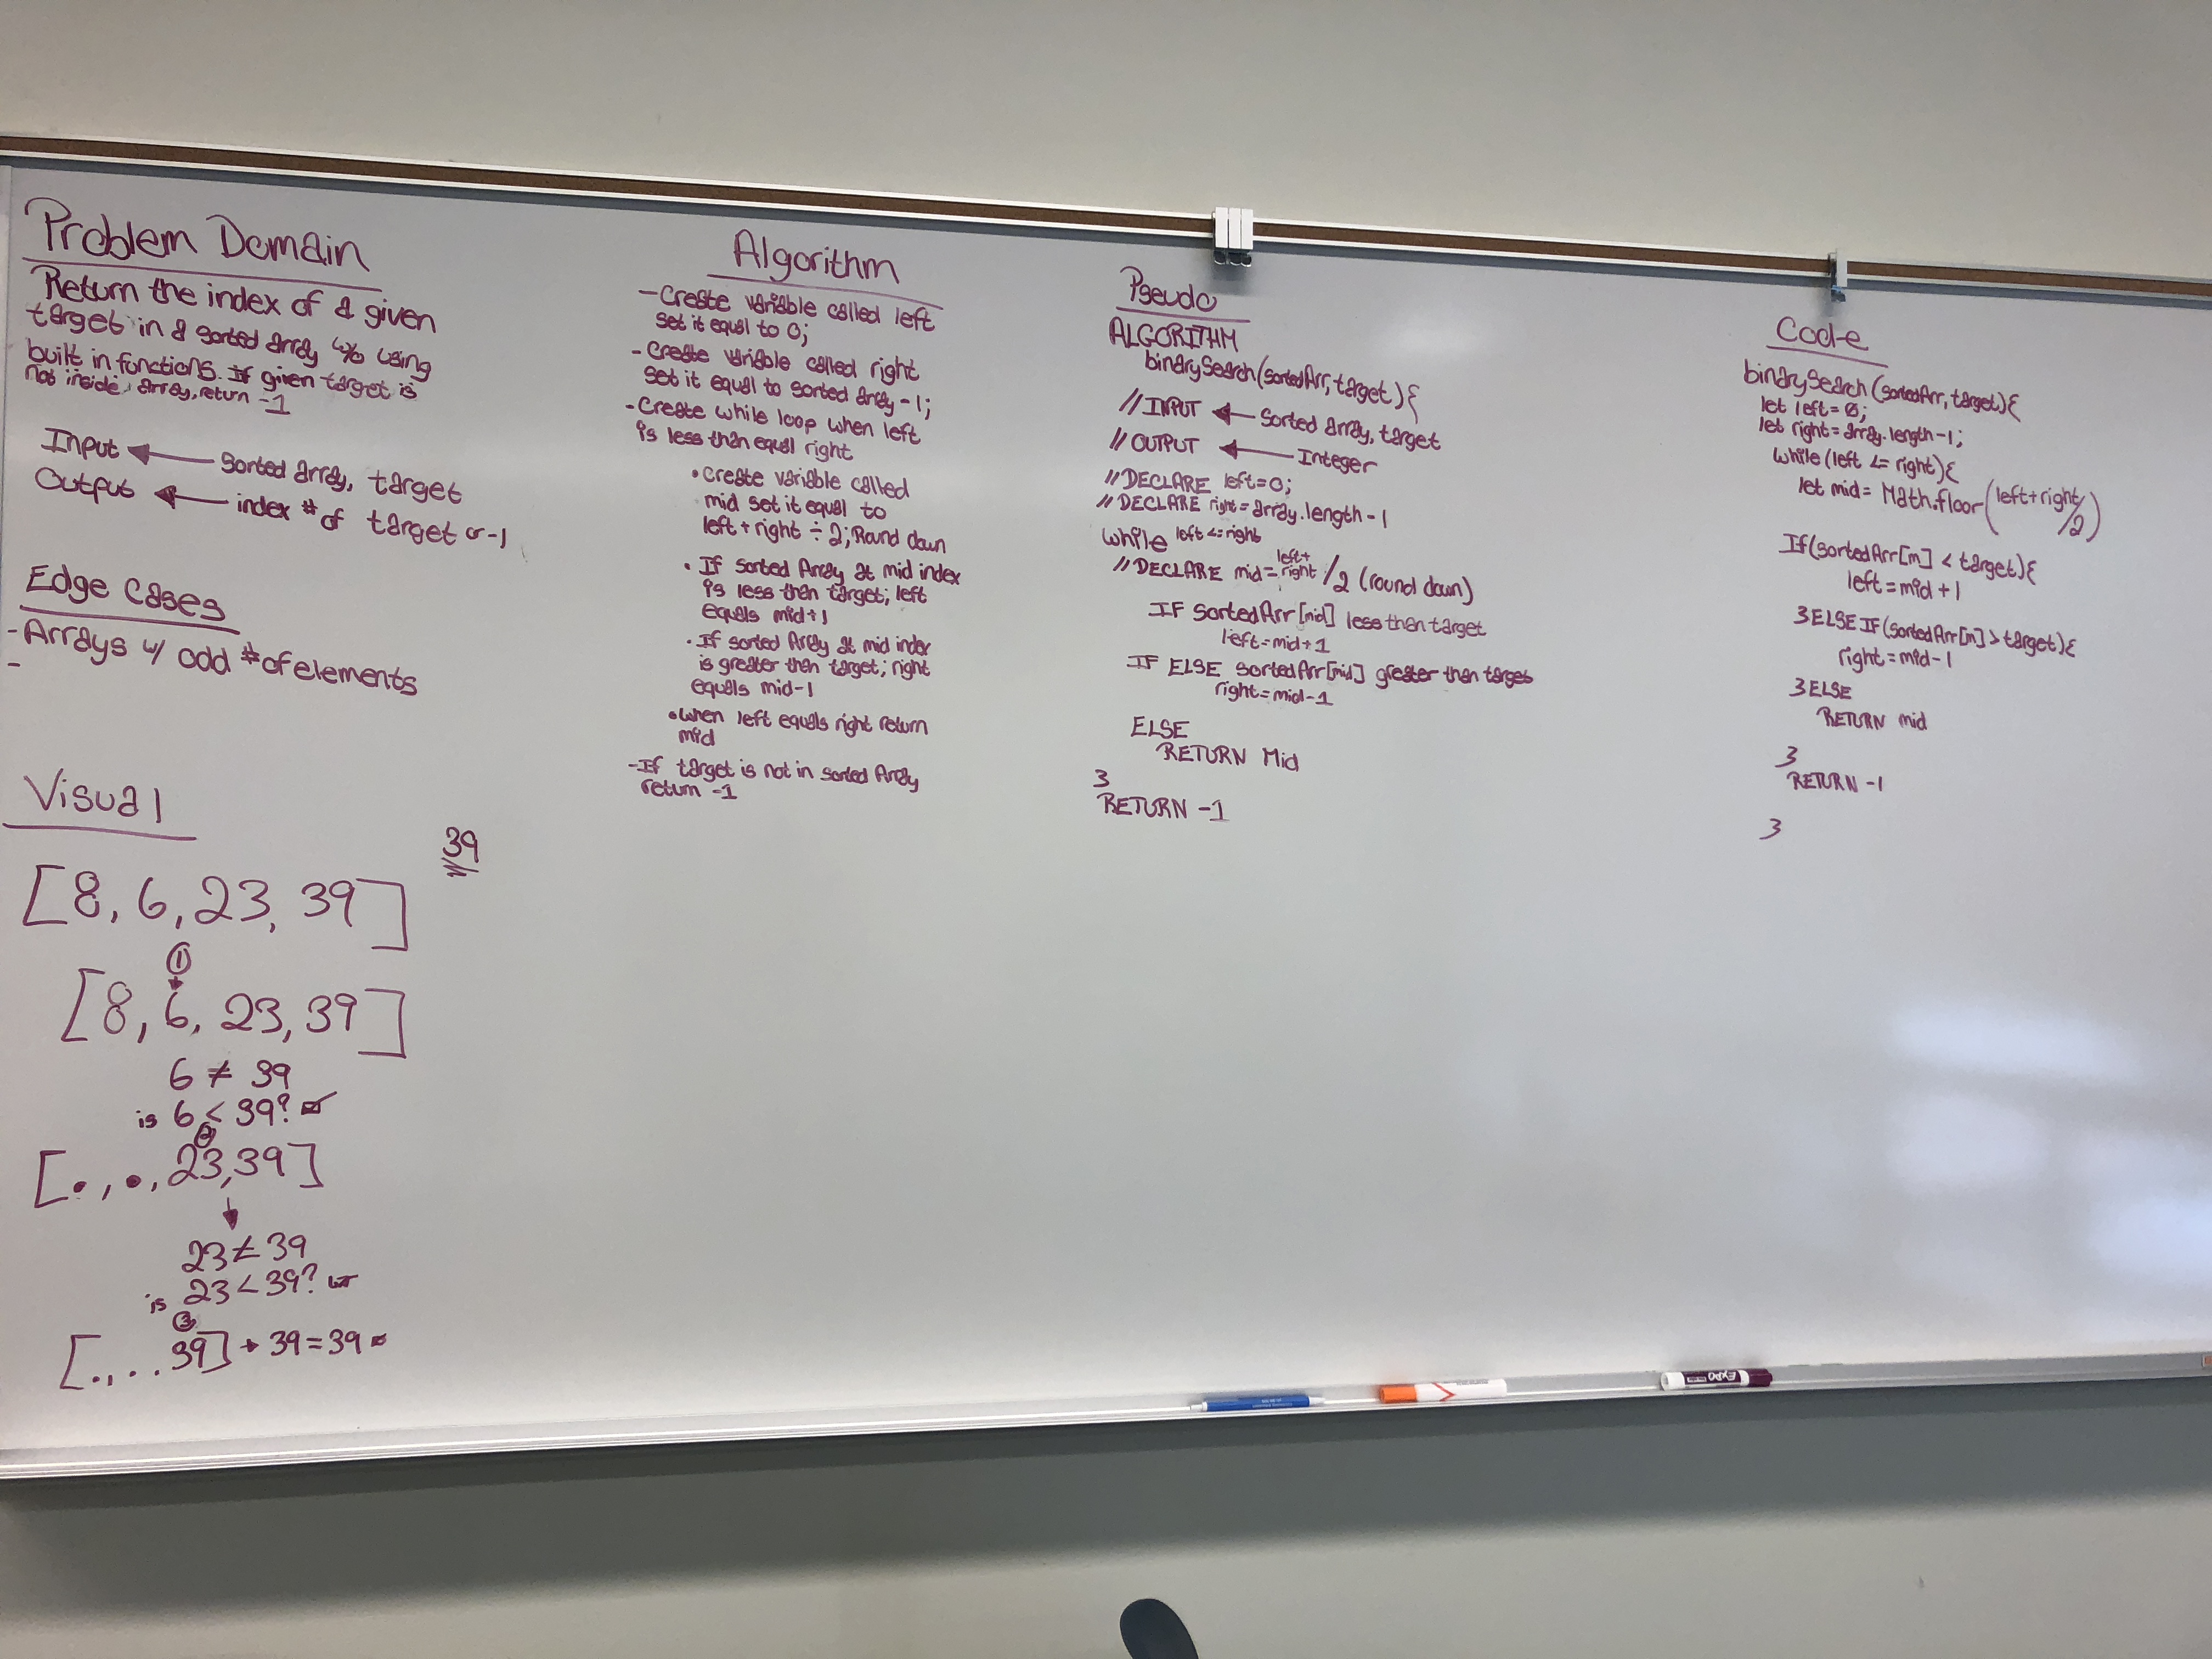 Problem Domain
Return the index of a given
target in a sorted array w/o using
built in functions. If given target is
not inside array, return -1
Input ← Sorted array, target
Output ← index # of target or -1
Edge Cases
- Arrays w/ odd # of elements
-
Visual
39
[8, 6, 23, 39]
①
[8, 6, 23, 39]
6 ≠ 39
is 6 < 39?
②
[., ., 23, 39]
23 ≠ 39
is 23 < 39?
③
[., . . 39] → 39 = 39
Algorithm
- Create variable called left
set it equal to 0;
- Create variable called right
set it equal to sorted array -1;
- Create while loop when left
is less than equal right
• Create variable called
mid set it equal to
left + right ÷ 2; Round down
• If sorted Array at mid index
is less than target; left
equals mid+1
• If sorted Array at mid index
is greater than target; right
equals mid-1
• When left equals right return
mid
- If target is not in sorted Array
return -1
Pseudo
ALGORITHM
binarySearch(sortedArr, target){
// INPUT ← Sorted array, target
// OUTPUT ← Integer
// DECLARE left = 0;
// DECLARE right = array.length - 1
while left <= right
// DECLARE mid = left + right / 2 (round down)
IF sortedArr[mid] less than target
left = mid + 1
IF ELSE sortedArr[mid] greater than target
right = mid - 1
ELSE
RETURN Mid
}
RETURN -1
Code
binarySearch(sortedArr, target){
let left = 0;
let right = array.length - 1;
while (left <= right){
let mid = Math.floor(left+right/2)
If(sortedArr[m] < target){
left = mid + 1
} ELSE IF(sortedArr[m] > target){
right = mid - 1
} ELSE
RETURN mid
}
RETURN -1
}
EXPO